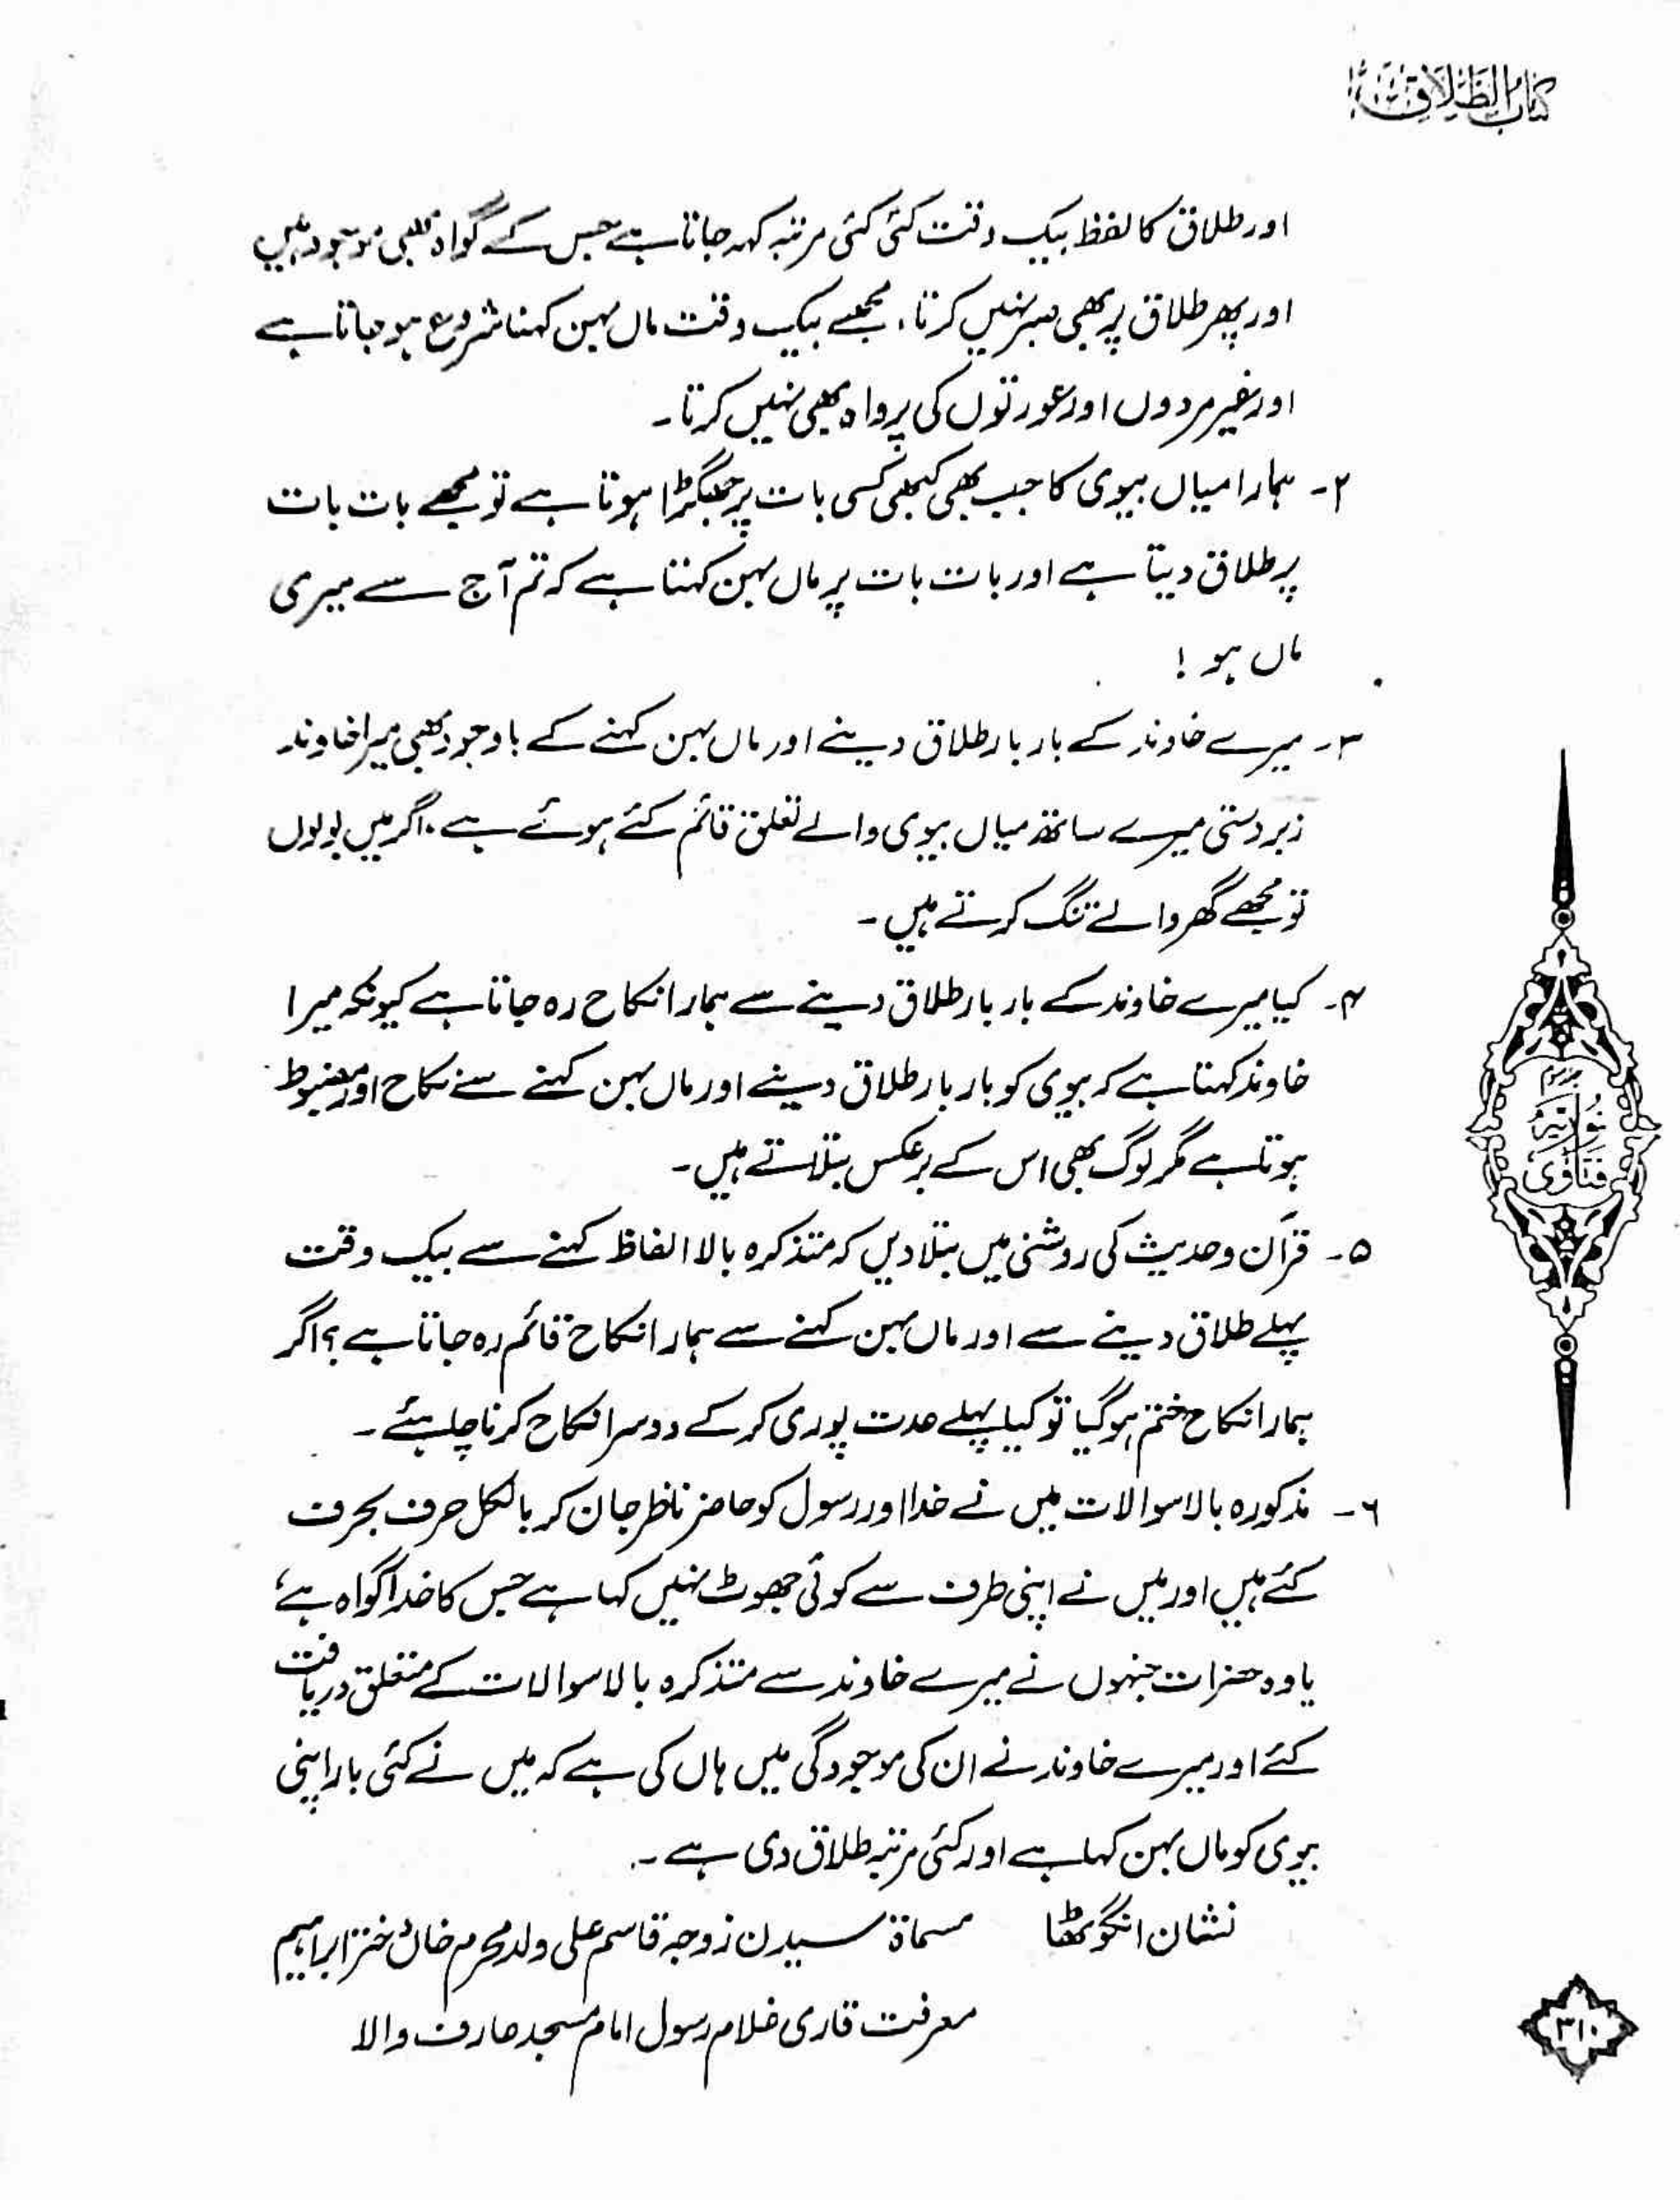 کتاب الطلاق
اور طلاق کا لفظ بیک وقت کئی کئی مرتبہ کہہ جاتا ہے جس کے گواہ بھی موجود ہیں
اور پھر طلاق پر بھی صبر نہیں کرتا، مجھے بیک وقت ماں بہن کہنا شروع ہو جاتا ہے
اور غیر مردوں اور عورتوں کی پرواہ بھی نہیں کرتا۔
۲۔ ہمارا میاں بیوی کا جب بھی کبھی کسی بات پر جھگڑا ہوتا ہے تو مجھے بات بات
پر طلاق دیتا ہے اور بات بات پر ماں بہن کہتا ہے کہ تم آج سے میری
ماں ہو !
۳۔ میرے خاوند کے بار بار طلاق دینے اور ماں بہن کہنے کے باوجود بھی میرا خاوند
زبردستی میرے ساتھ میاں بیوی والے تعلق قائم کئے ہوئے ہے۔ اگر میں بولوں
تو مجھے گھر والے تنگ کرتے ہیں۔
۴۔ کیا میرے خاوند کے بار بار طلاق دینے سے ہمارا نکاح رہ جاتا ہے کیونکہ میرا
خاوند کہتا ہے کہ بیوی کو بار بار طلاق دینے اور ماں بہن کہنے سے نکاح اور مضبوط
ہوتا ہے مگر لوگ بھی اس کے برعکس بتلاتے ہیں۔
۵۔ قرآن و حدیث کی روشنی میں بتلا دیں کہ متذکرہ بالا الفاظ کہنے سے بیک وقت
پہلے طلاق دینے سے اور ماں بہن کہنے سے ہمارا نکاح قائم رہ جاتا ہے؟ اگر
ہمارا نکاح ختم ہو گیا تو کیا پہلے عدت پوری کر کے دوسرا نکاح کرنا چاہئے۔
۶۔ مذکورہ بالا سوالات میں نے خدا اور رسول کو حاضر ناظر جان کر بالکل حرف بحرف
کئے ہیں اور میں نے اپنی طرف سے کوئی جھوٹ نہیں کہا ہے جس کا خدا گواہ ہے
یا وہ حضرات جنہوں نے میرے خاوند سے متذکرہ بالا سوالات کے متعلق دریافت
کئے اور میرے خاوند نے ان کی موجودگی میں ہاں کی ہے کہ میں نے کئی بار اپنی
بیوی کو ماں بہن کہا ہے اور کئی مرتبہ طلاق دی ہے۔
نشان انگوٹھا مسماۃ سیدن زوجہ قاسم علی ولد محرم خاں دختر ابراہیم
معرفت قاری غلام رسول امام مسجد عارف والا
جلد سوم
نوریہ
فتاوی
۳۱۰